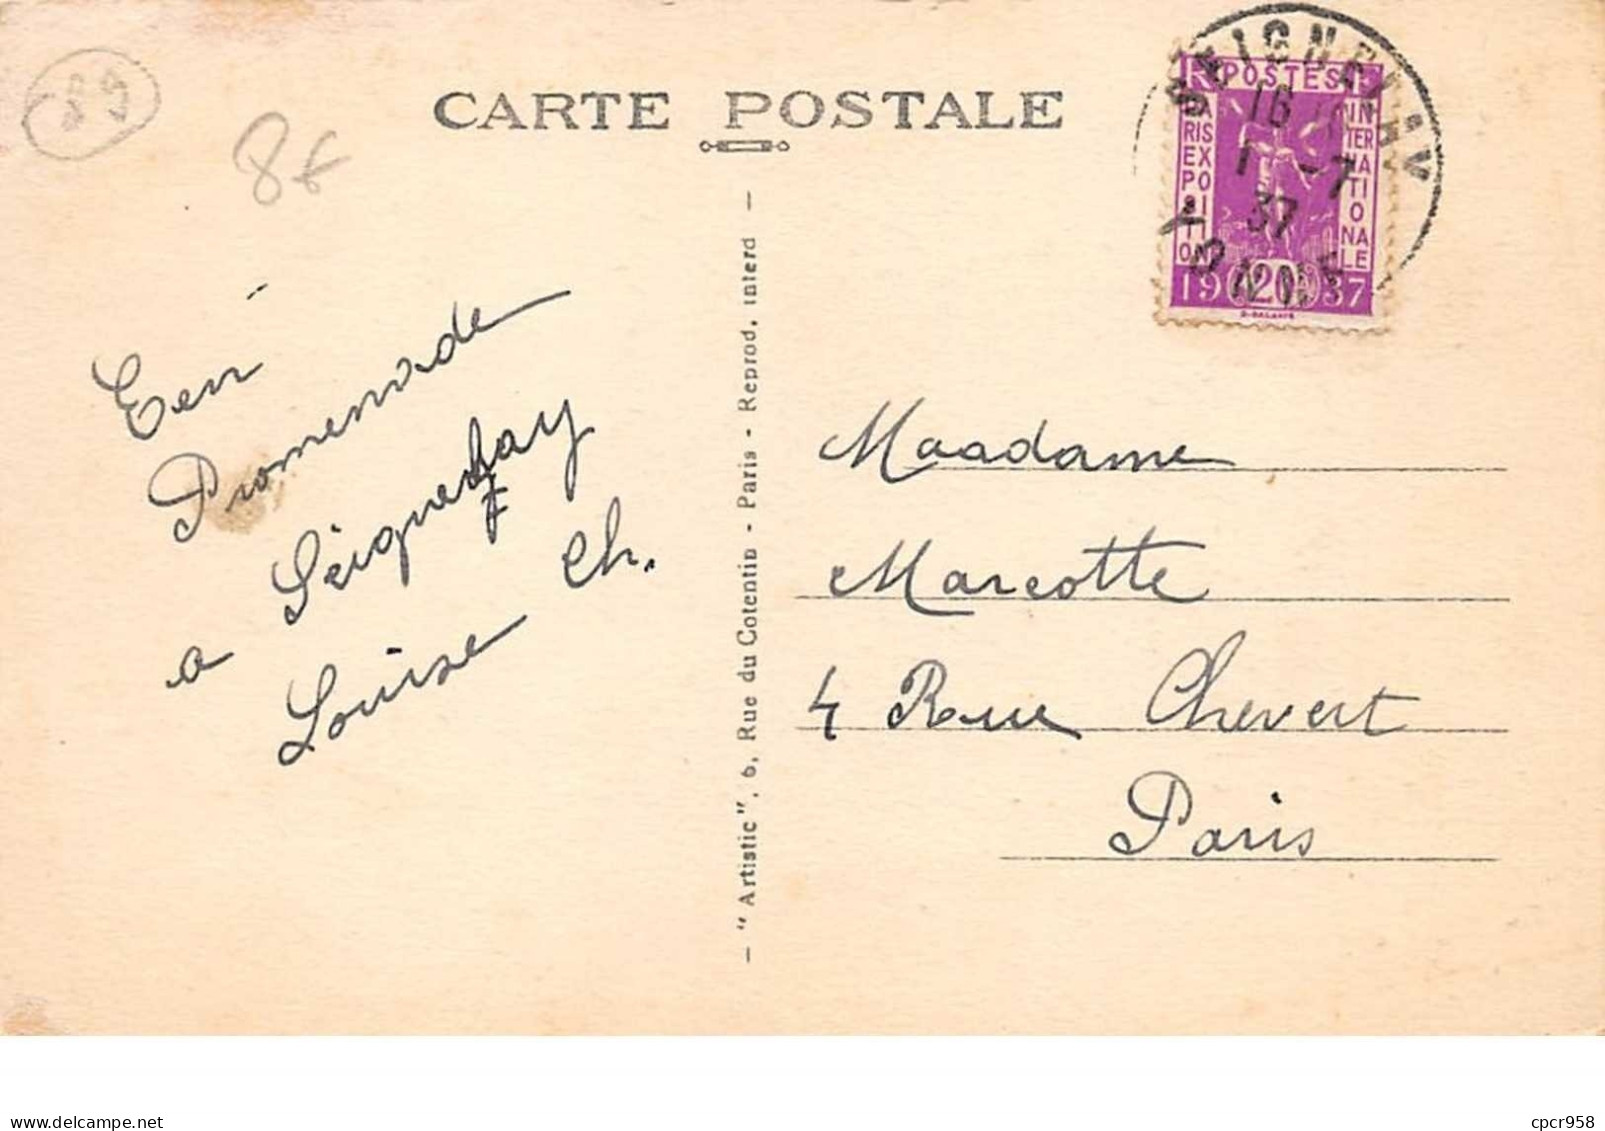 89
8€
CARTE POSTALE
SEIGNELAY
16
1 - 7
37
YONNE
RF POSTES
PARIS EXPOSITION
INTERNATIONALE
1937
20
Een
Promenade
a Seignelay
Louise Ch.
- "Artistic", 6, Rue du Cotentin - Paris - Reprod. interd -
Maadame
Marcotte
4 Rue Chevert
Paris
delcampe.net
cpcr958